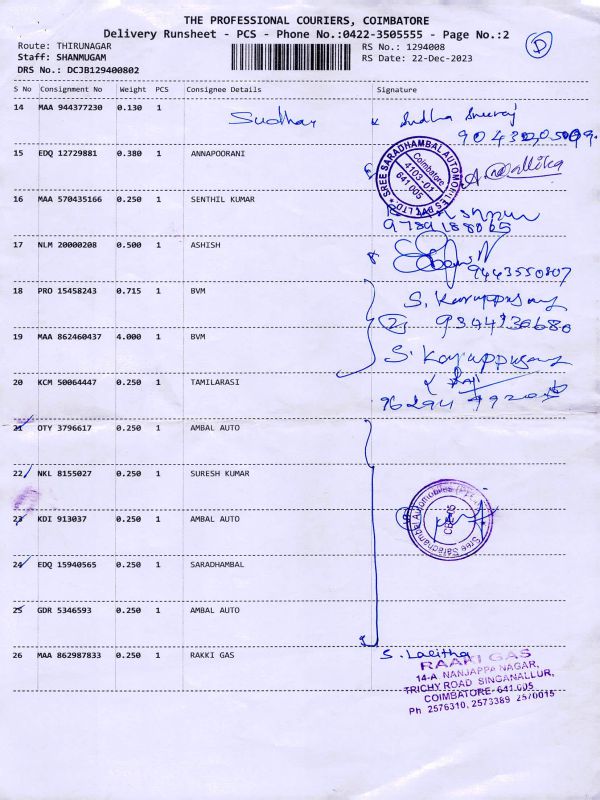 THE PROFESSIONAL COURIERS, COIMBATORE
Delivery Runsheet - PCS - Phone No.:0422-3505555 - Page No.:2
D
Route: THIRUNAGAR
RS No.: 1294008
Staff: SHANMUGAM
RS Date: 22-Dec-2023
DRS No.: DCJB129400802
S No Consignment No Weight PCS Consignee Details Signature
14 MAA 944377230 0.130 1 Sudhar
15 EDQ 12729881 0.380 1 ANNAPOORANI
SREE SARADHAMBAL AUTOMOBILES PVT LTD
Coimbatore
4103-07
641 005
A. Mallika
16 MAA 570435166 0.250 1 SENTHIL KUMAR
9789188065
17 NLM 20000208 0.500 1 ASHISH
9443550807
18 PRO 15458243 0.715 1 BVM S. Karuppusamy
2 9344930680
19 MAA 862460437 4.000 1 BVM S. Karuppusamy
20 KCM 50064447 0.250 1 TAMILARASI
21 OTY 3796617 0.250 1 AMBAL AUTO
22 NKL 8155027 0.250 1 SURESH KUMAR
23 KDI 913037 0.250 1 AMBAL AUTO
5
24 EDQ 15940565 0.250 1 SARADHAMBAL
25 GDR 5346593 0.250 1 AMBAL AUTO
26 MAA 862987833 0.250 1 RAKKI GAS S. Lalitha
RAAKI GAS
14-A NANJAPPA NAGAR,
TRICHY ROAD SINGANALLUR,
COIMBATORE-641 005
Ph 2576310, 2573389 2570015